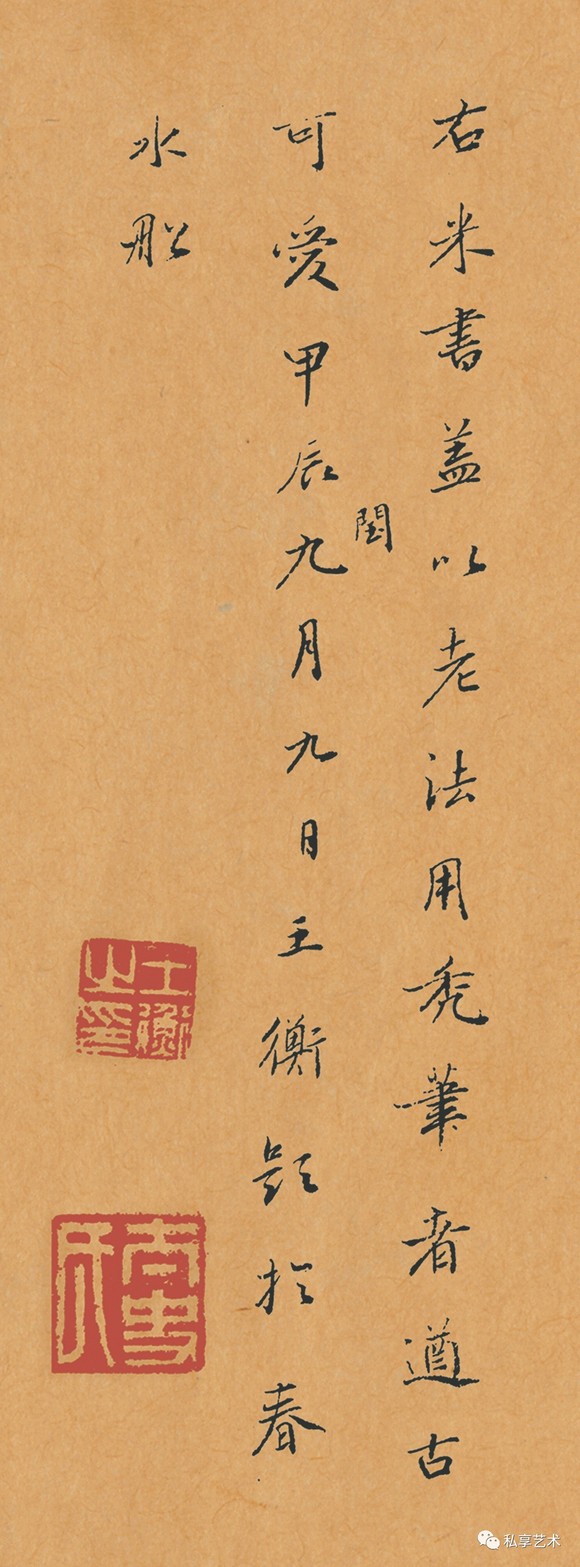 右米書盖以老法用秃筆者遒古
可愛甲辰閏九月九日王衡題於春
水船
王衡之印
私享艺术